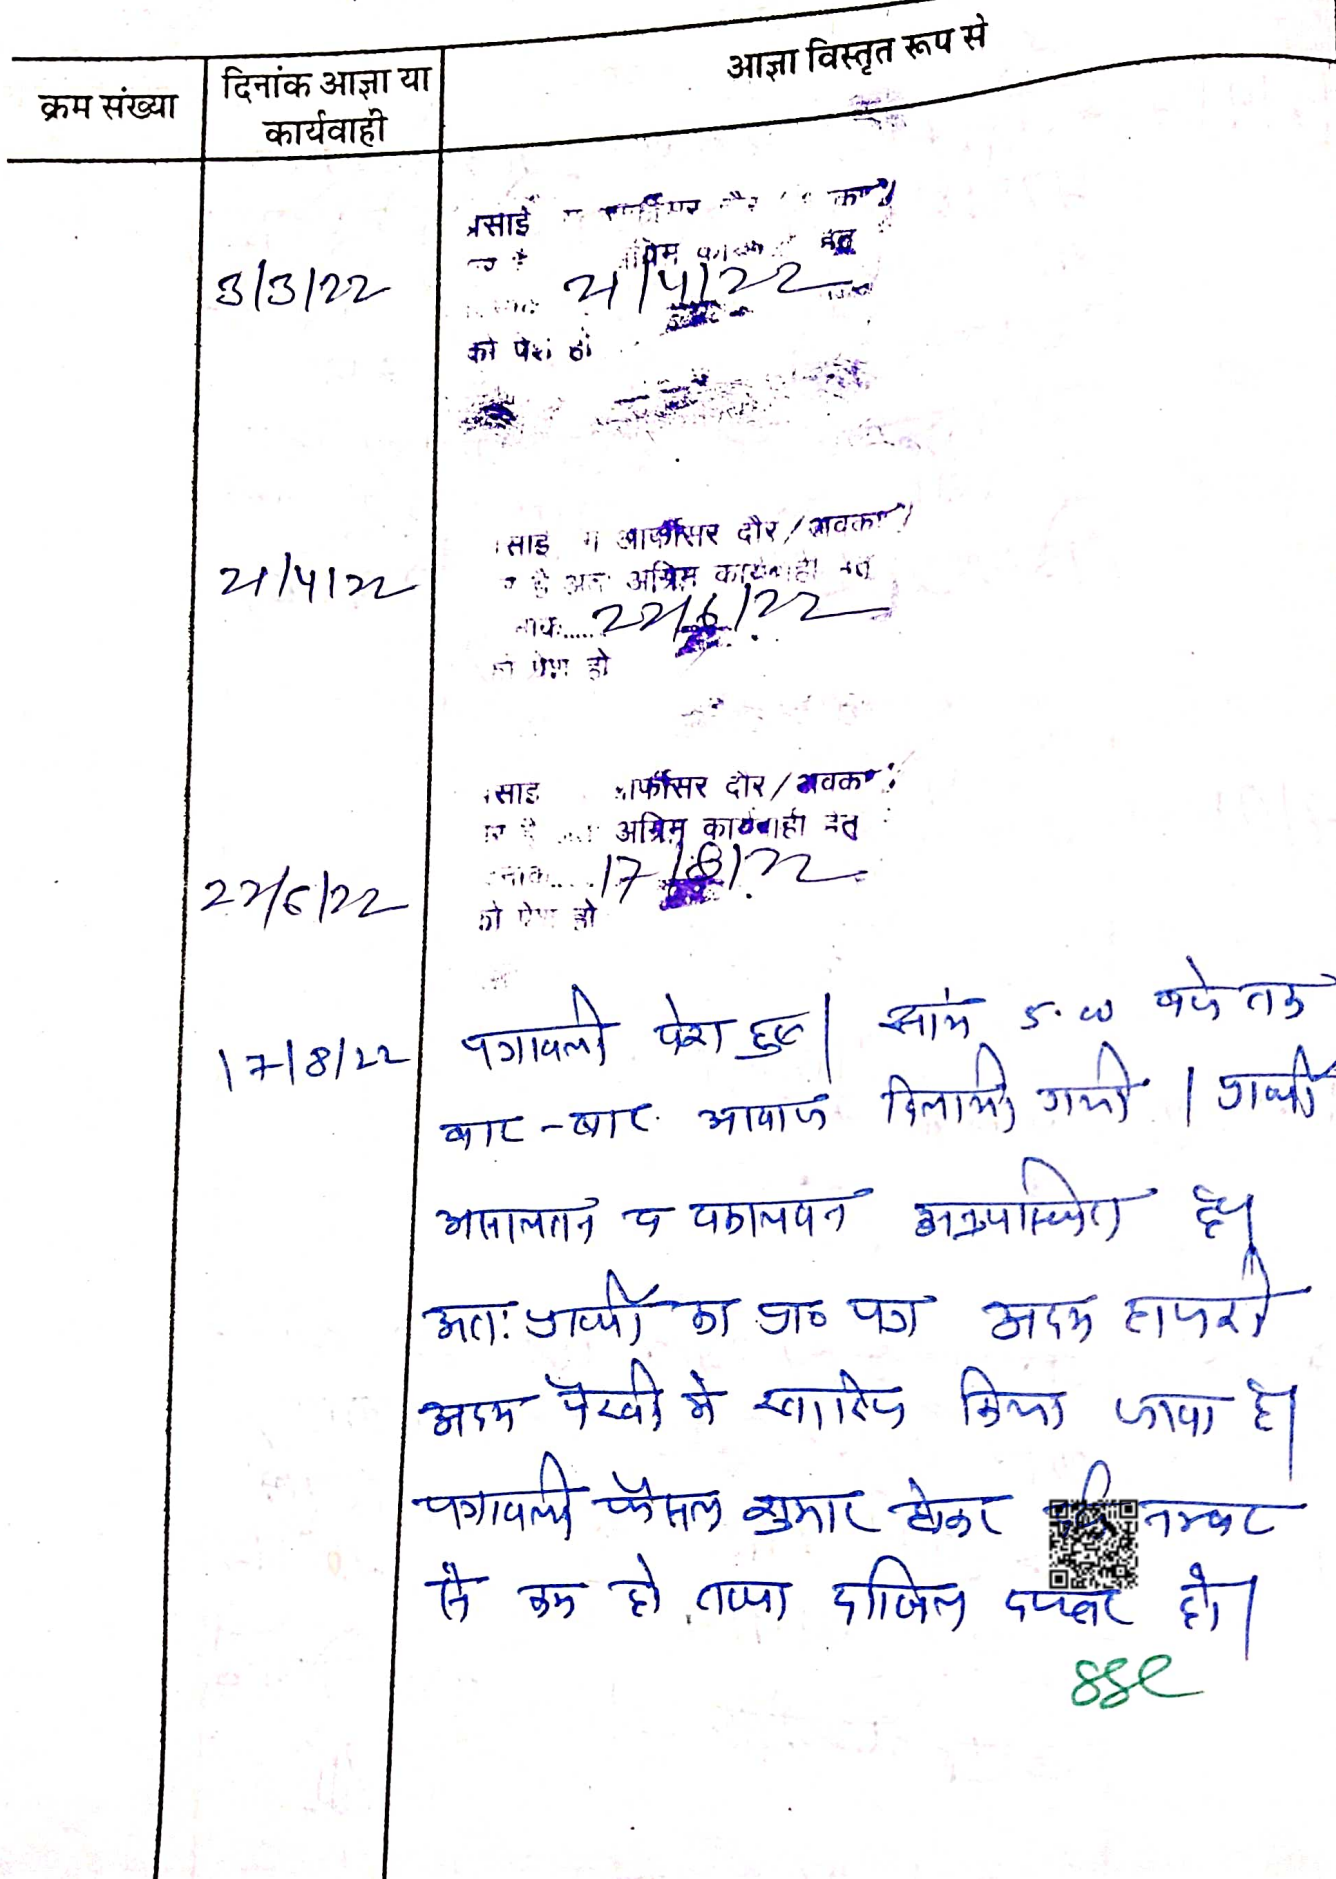 क्रम संख्या
दिनांक आज्ञा या
कार्यवाही
आज्ञा विस्तृत रूप से
3/3/22
21/4/22
को पेश हो
21/4/22
आफीसर दौर/अवका
है अतः अग्रिम कार्यवाही
22/6/22
पेश हो
22/6/22
आफीसर दौर/अवका
अग्रिम कार्यवाही
17/8/22
को पेश हो
17/8/22
पत्रावली पेश हुई। सांय 5.00 बजे तक
बार-बार आवाज दिलायी गयी। प्रार्थी
असालतन व वकालतन अनुपस्थित है।
अतः प्रार्थी का प्रा० पत्र अदम हाजरी
अदम पैरवी में खारिज किया जाता है।
पत्रावली फैसल शुमार होकर नम्बर
से कम हो तथा दाखिल दफ्तर हो।